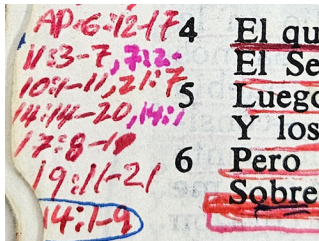 AP.6:12-17
11:3-7, 7:2-
10:1-11, 21:7
14:14-20, 14:1
17:8-
19:11-21
14:1-9
4 El qu
El Se
5 Luego
Y los
6 Pero
Sobre